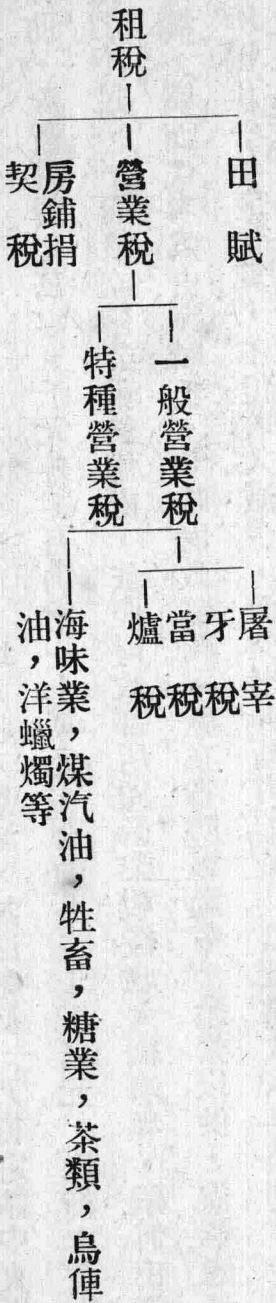 租稅
田賦
營業稅
房鋪捐
契稅
一般營業稅
特種營業稅
屠宰
牙稅
當稅
爐稅
海味業，煤汽油，牲畜，糖業，茶類，烏俥
油，洋蠟燭等